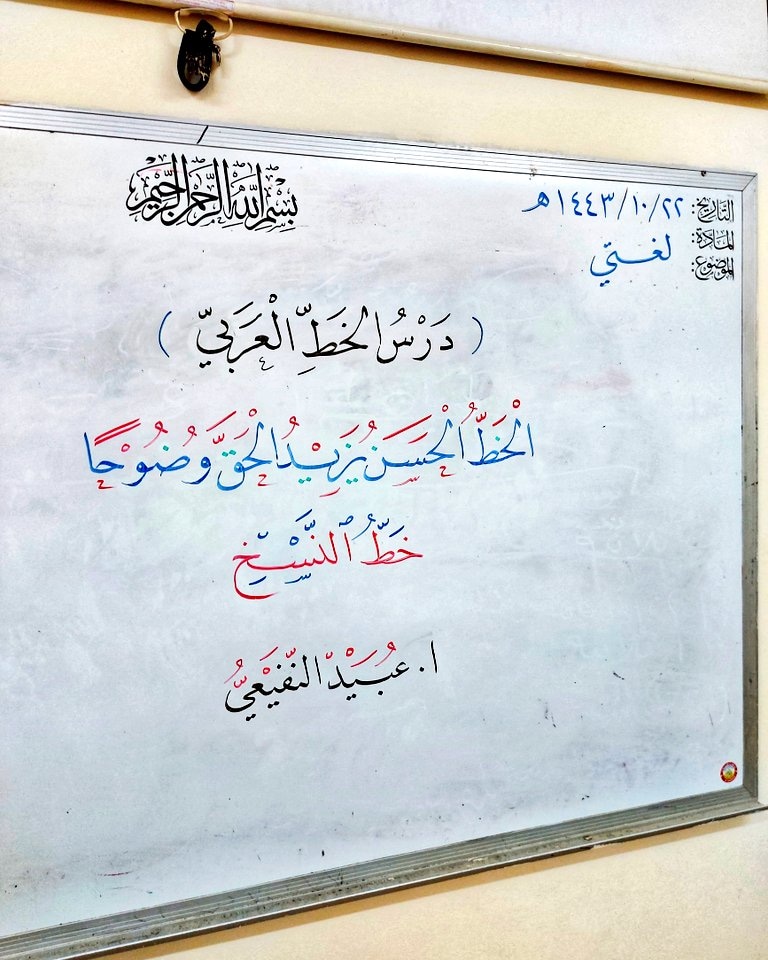 بِسْمِ اللَّهِ الرَّحْمَنِ الرَّحِيمِ
التَّارِيخ: ٢٢/١٠/١٤٤٣هـ
المَادَّة: لغتي
الموضوع:
( دَرْسُ الخَطِّ الْعَرَبِيّ )
الْخَطُّ الْحَسَن يُزَيْدُ الْحَقَّ وَضُوْحًا
خَطُّ النَّسْخِ
ا. عُبَيْد النّفَيْعِيّ